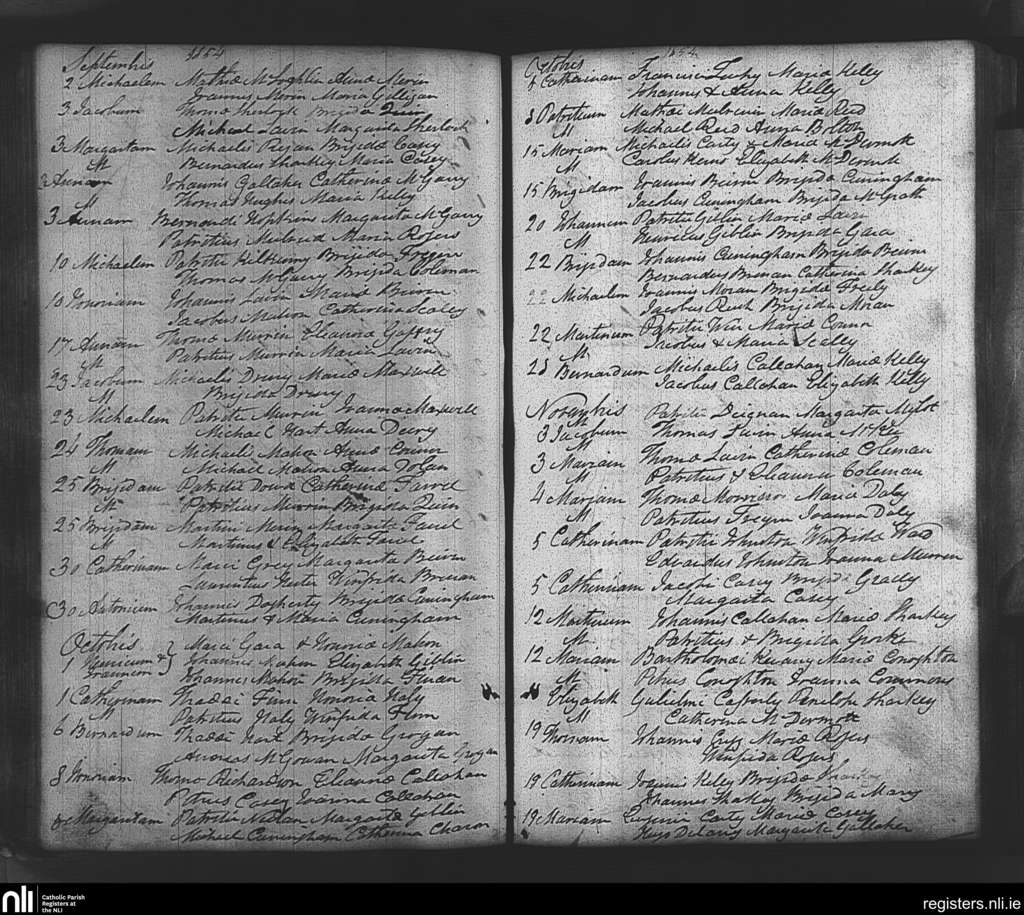 Septembris 1854
2 Michaelem Mathie McLoghlin Anna Mervin
Joannes Mervin Maria Gilligan
3 Jacobum Thoma Sherlock Brigida Quin
Michael Lavin Margarita Sherlock
3 Margaritam Michaelis Regan Brigida Casey
M Bernardus Sharkey Maria Casey
3 Annam Johannis Gallaher Catherina McGarry
M Thomas Hughes Maria Kelly
3 Annam Bernardi Hopkins Margarita McGarry
Patritius Mulred Maria Rogers
10 Michaelem Patritii Kilkenny Brigida
Thomas McGarry Brigida Coleman
10 Honoriam Johannis Lavin Maria Beirne
Jacobus Mahon Catherina Scally
17 Annam Thoma Murrin Eleanora Gaffry
M Patritius Murrin Maria Lavin
23 Jacobum Michaelis Drury Maria Maxwell
M Brigida Drury
23 Michaelem Patritii Murrin Joanna Maxwell
Michael Hart Anna Drury
24 Thomam Michaelis Mahon Anna Connor
M Michael Mahon Anna Dolan
25 Brigidam Patritii Dowd Catherina Farrel
M Patritius Murrin Brigida Quin
25 Brigidam Martini Mervin Margarita Farrel
M Martinus & Elizabeth Farrel
30 Catherinam Marci Grey Margarita Beirne
Laurentius Winifrida Brenan
30 Antonium Johannes Dogherty Brigida Cuningham
Martinus & Maria Cuningham
Octobris Marci Gara & Honoria Mahon
1 Henricum & Johannes Mahon Elizabeth Giblin
Joannem Johannes Mahon Brigida
1 Catherinam Thadai Finn Honoria Haly
M Patritius Haly Winifrida Finn
6 Bernardum Thadai Hart Brigida Grogan
Andreas McGowan Margarita Grogan
8 Honoriam Thoma Richardson Eleanora Callahan
Petrus Casey Joanna Callahan
8 Margaritam Patritii Nallan Margarita Giblin
Michael Cuningham Catherina Charon
Octobris 1854
8 Catherinam Francisci Maria Kelly
Johannes & Anna Kelly
8 Patritium Mathai Mulrenin Maria Reid
M Michael Reid Anna Bolton
15 Mariam Michaelis Carty & Maria McDermott
M Carolus Elizabeth McDermott
15 Brigidam Joannis Beirne Brigida Cuningham
Jacobus Cuningham Brigida McGrath
20 Johannem Patritii Giblin Maria Lavin
M Henricus Giblin Brigida Gara
22 Brigidam Johannis Cuningham Brigida Beirne
Bernardus Brenan Catherina Sharkey
22 Michaelem Joannis Moran Brigida Freely
Jacobus Brigida Moran
22 Martinum Patritii Maria
M Jacobus & Maria Scally
28 Bernardum Michaelis Callahan Maria Kelly
Jacobus Callahan Elizabeth Kelly
Novembris Patritii Deignan Margarita
3 Jacobum Thomas Lavin Anna
M
3 Mariam Thoma Lavin Catherina Coleman
M Patritius & Eleanora Coleman
4 Mariam Thoma Morrison Maria Daly
M Patritius Joanna Daly
5 Catherinam Patritii Johnston Winifrida Ward
Edvardus Johnston Joanna
5 Catherinam Jacobi Casey Brigida Grady
Margarita Casey
12 Martinum Johannis Callahan Maria Sharkey
M Patritius & Brigida
12 Mariam Bartholomai Maria Conoghton
M Petrus Conoghton Joanna Commons
Elizabeth Gulielmi Penelope Sharkey
M Catherina McDermott
19 Thomam Johannis Maria Rogers
Winifrida Rogers
19 Catherinam Joannis Kelly Brigida
Johannes Sharkey Brigida
19 Mariam Eugenii Carty Maria Casey
Margarita Gallaher
nli
Catholic Parish
Registers at
the NLI
registers.nli.ie